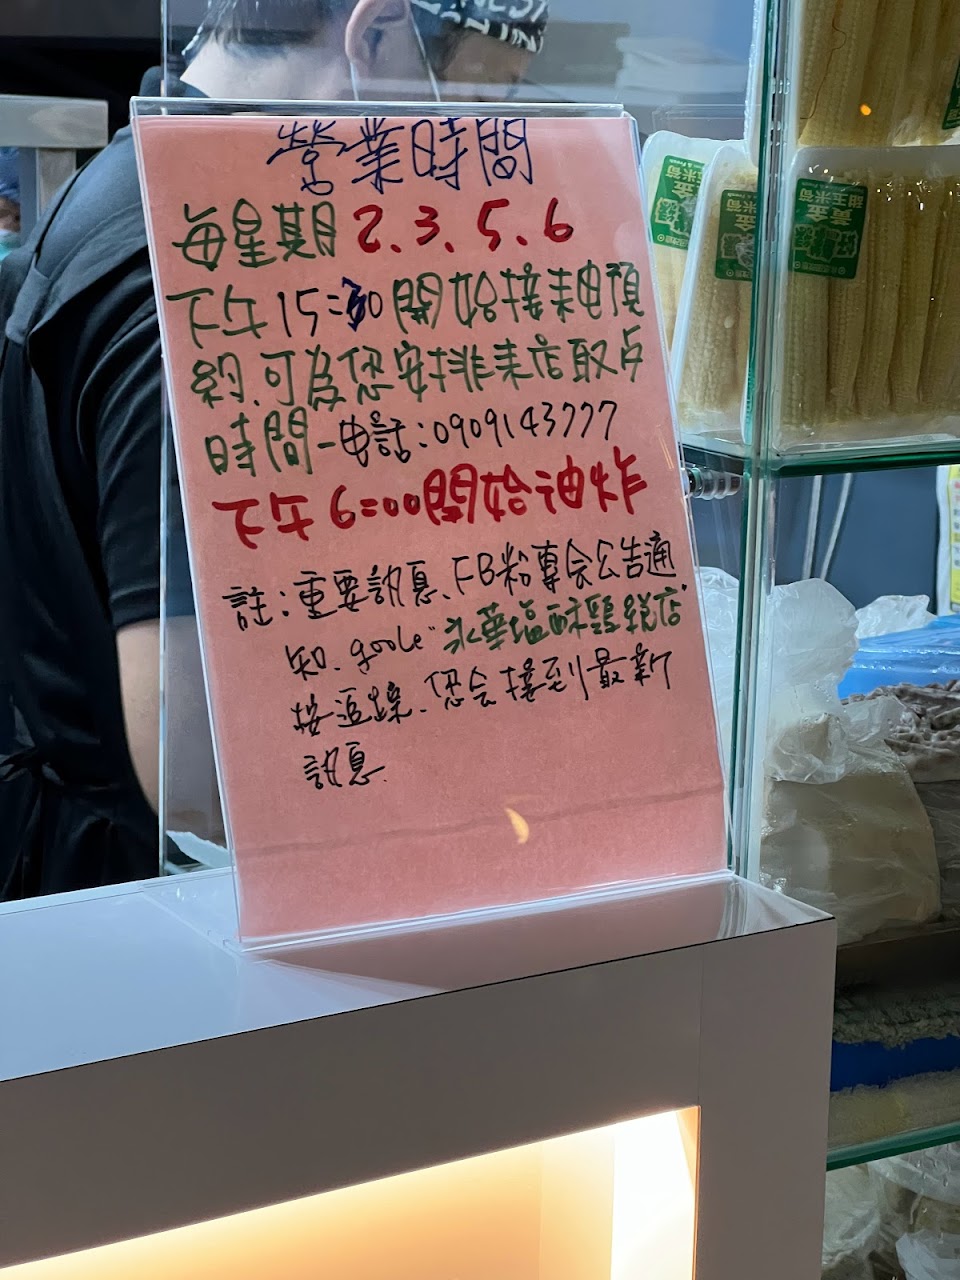 營業時間
每星期 2、3、5、6
下午15:30開始接來電預
約、可為您安排來店取点
時間-電話:0909143777
下午6:00開始油炸
註:重要訊息、FB粉專会公告通
知、google"永華塩酥鷄総店"
按追蹤、您会接到最新
訊息.
黃金
甜玉米筍
黃金
玉米筍